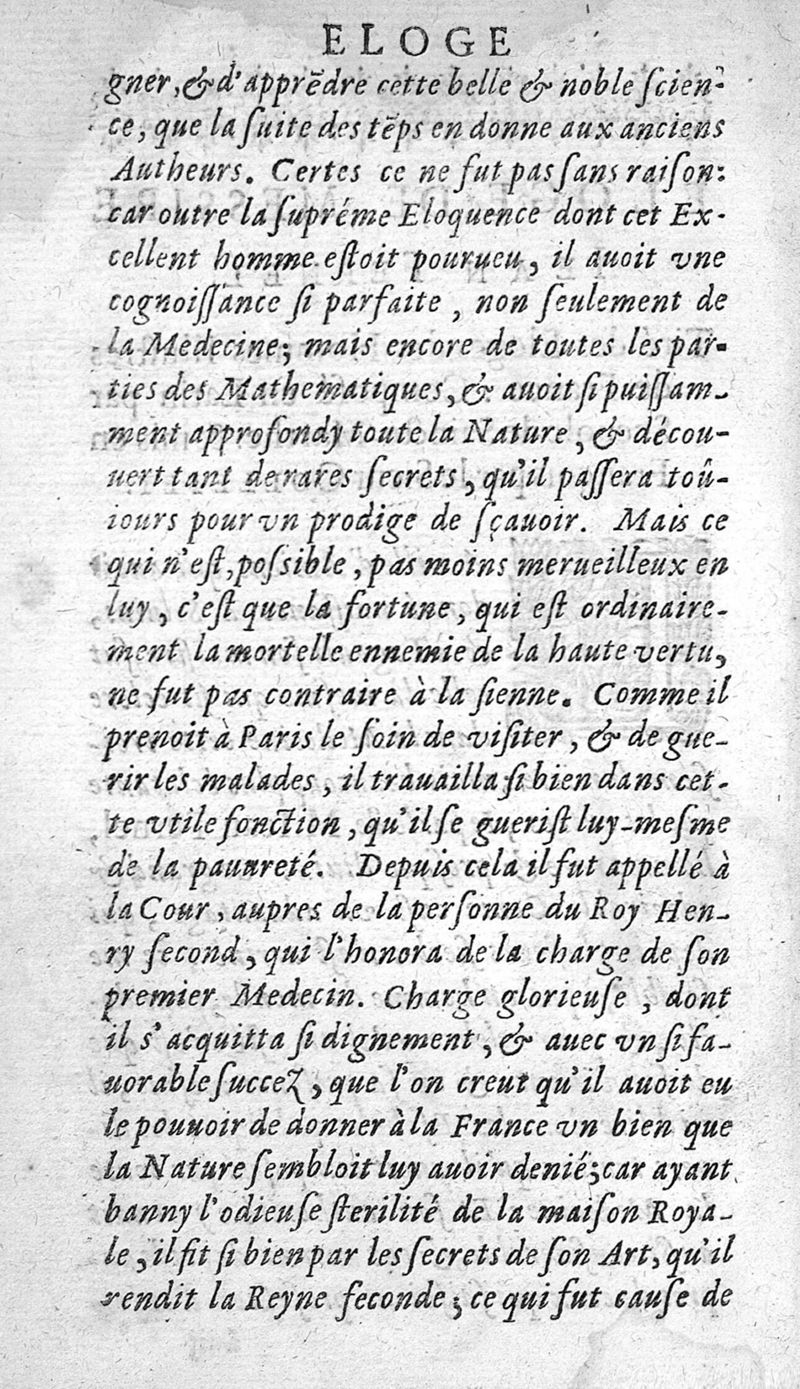 ELOGE
gner, & d'apprẽdre cette belle & noble ſcien-
ce, que la ſuite des tẽps en donne aux anciens
Autheurs. Certes ce ne fut pas ſans raiſon:
car outre la ſupréme Eloquence dont cet Ex-
cellent homme eſtoit pourueu, il auoit vne
cognoiſſance ſi parfaite, non ſeulement de
la Medecine; mais encore de toutes les par-
ties des Mathematiques, & auoit ſi puiſſam-
ment approfondy toute la Nature, & décou-
uert tant de rares ſecrets, qu'il paſſera toû-
iours pour vn prodige de ſçauoir. Mais ce
qui n'eſt, poſsible, pas moins merueilleux en
luy, c'eſt que la fortune, qui eſt ordinaire-
ment la mortelle ennemie de la haute vertu,
ne fut pas contraire à la ſienne. Comme il
prenoit à Paris le ſoin de viſiter, & de gue-
rir les malades, il trauailla ſi bien dans cet-
te vtile fonction, qu'il ſe gueriſt luy-meſme
de la pauureté. Depuis cela il fut appellé à
la Cour, aupres de la perſonne du Roy Hen-
ry ſecond, qui l'honora de la charge de ſon
premier Medecin. Charge glorieuſe, dont
il s'acquitta ſi dignement, & auec vn ſi fa-
uorable ſuccez, que l'on creut qu'il auoit eu
le pouuoir de donner à la France vn bien que
la Nature ſembloit luy auoir denié; car ayant
banny l'odieuſe ſterilité de la maiſon Roya-
le, il fit ſi bien par les ſecrets de ſon Art, qu'il
rendit la Reyne feconde; ce qui fut cauſe de